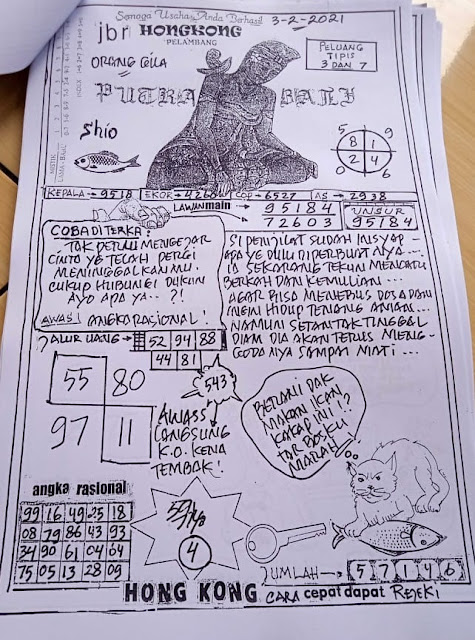 Semoga Usaha Anda Berhasil 3-2-2021
jbr HONGKONG
PELAMBANG
ORANG GILA
PELUANG
TIPIS
3 DAN 7
PUTRA BALI
Shio
5 9
8 1
2 4
0 6
KEPALA → 9518 EKOR → COP → 6527 AS → 2938
LAWAN main → 95184
72603
UNSUR
95184
COBA DI TERKA:
TAK PERLU MENGEJAR
CINTO YG TELAH PERGI
MENINGGALKAN MU.
CUKUP HUBUNGI DUKUN
AYO APA YA..?!
AWAS ANGKA RASIONAL!
SI PENJILAT SUDAH INSYAP
APA YG DULU DI PERBUAT NYA...
IA SEKARANG TEKUN MENCARI
BERKAH DAN KEMULIAN...
AGAR BISA MENEBUS DOSA DAN
INGIN HIDUP TENANG AMAN...
NAMUN SETAN TAK TINGGAL
DIAM DIA AKAN TERUS MENG-
GODA NYA SAMPAI MATI...
JALUR UANG → 52 94 88
44 81
543
55 80
97 11
AWASS
LANGSUNG
K.O. KENA
TEMBAK!
BERANI DAK
MAKAN IKAN
KAKAP INI!?
TAR BOSKU
MARAH!
angka rasional
99 16 49 25 18
08 79 86 43 93
34 90 61 04 64
75 05 13 28 09
4
JUMLAH → 5 7 1 4 6
HONG KONG CARA cepat dapat REJEKI